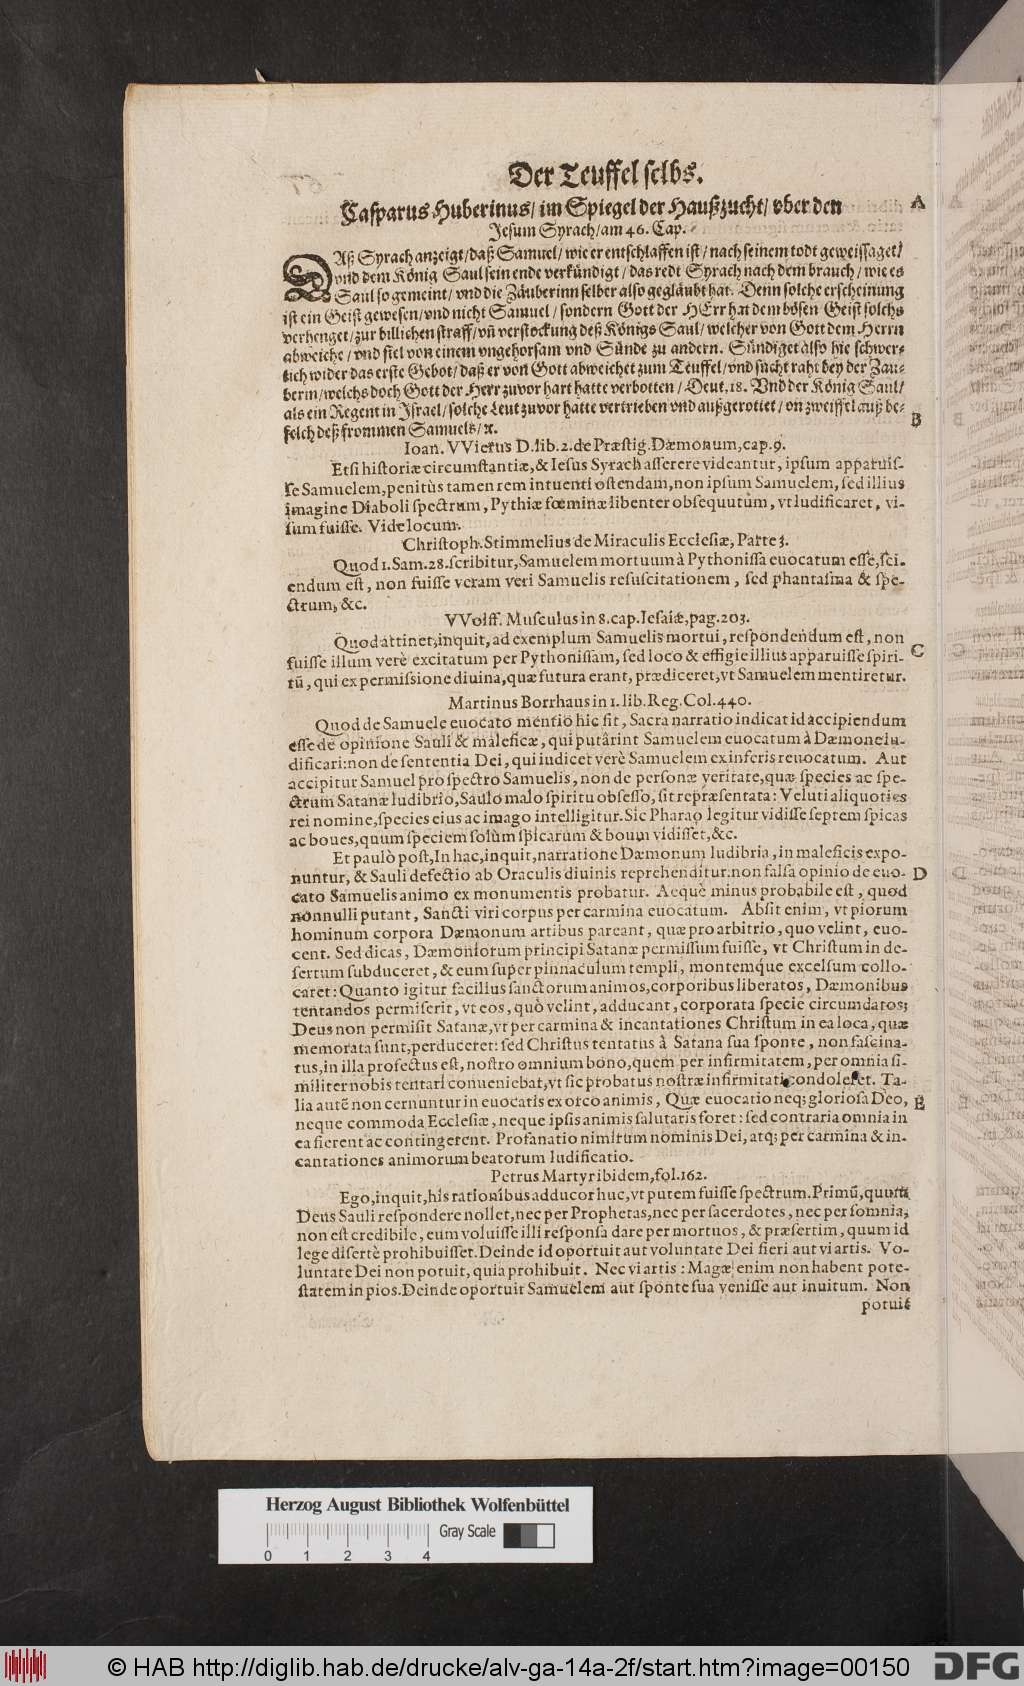 Der Teuffel selbs.
Casparus Huberinus/ im Spiegel der Haußzucht/ vber den
Jesum Syrach/ am 46. Cap.
A
DAß Syrach anzeigt/ daß Samuel/ wie er entschlaffen ist/ nach seinem todt geweissaget/
vnd dem König Saul sein ende verkündigt/ das redt Syrach nach dem brauch/ wie es
Saul so gemeint/ vnd die Zäuberinn selber also gegläubt hat. Denn solche erscheinung
ist ein Geist gewesen/ vnd nicht Samuel/ sondern Gott der HErr hat dem bösen Geist solchs
verhenget/ zur billichen straff/ vñ verstockung deß Königs Saul/ welcher von Gott dem Herrn
abweiche/ vnd fiel von einem vngehorsam vnd Sünde zu andern. Sündiget also hie schwer-
lich wider das erste Gebot/ daß er von Gott abweichet zum Teuffel/ vnd sucht raht bey der Zau-
berin/ welchs doch Gott der Herr zuvor hart hatte verbotten/ Deut. 18. Vnd der König Saul/
als ein Regent in Israel/ solche Leut zuvor hatte vertrieben vnd außgerottet/ on zweiffel auß be-
B
felch deß frommen Samuels/ ꝛc.
Ioan. VVierus D. lib. 2. de Præstig. Dæmonum, cap. 9.
Etsi historiæ circumstantiæ, & Iesus Syrach asserere videantur, ipsum apparuis-
se Samuelem, penitùs tamen rem intuenti ostendam, non ipsum Samuelem, sed illius
imagine Diaboli spectrum, Pythiæ fœminæ libenter obsequutùm, vt ludificaret, vi-
sum fuisse. Vide locum.
Christoph. Stimmelius de Miraculis Ecclesiæ, Parte 3.
Quod 1. Sam. 28. scribitur, Samuelem mortuum à Pythonissa euocatum esse, sci-
endum est, non fuisse veram veri Samuelis resuscitationem, sed phantasma & spe-
ctrum, &c.
VVolff. Musculus in 8. cap. Iesaiæ, pag. 203.
Quod attinet, inquit, ad exemplum Samuelis mortui, respondendum est, non
C
fuisse illum verè excitatum per Pythonissam, sed loco & effigie illius apparuisse spiri-
tũ, qui ex permissione diuina, quæ futura erant, prædiceret, vt Samuelem mentiretur.
Martinus Borrhaus in 1. lib. Reg. Col. 440.
Quod de Samuele euocato mentio hic fit, Sacra narratio indicat id accipiendum
esse de opinione Sauli & maleficæ, qui putârint Samuelem euocatum à Dæmone iu-
dificari: non de sententia Dei, qui iudicet verè Samuelem ex inferis reuocatum. Aut
accipitur Samuel pro spectro Samuelis, non de personæ veritate, quæ species ac spe-
ctrum Satanæ ludibrio, Saulo malo spiritu obsesso, sit repræsentata: Veluti aliquoties
rei nomine, species eius ac imago intelligitur. Sic Pharao legitur vidisse septem spicas
ac boues, quum speciem solùm spicarum & boum vidisset, &c.
Et paulò post, In hac, inquit, narratione Dæmonum ludibria, in maleficis expo-
nuntur, & Sauli defectio ab Oraculis diuinis reprehenditur: non falsa opinio de euo-
D
cato Samuelis animo ex monumentis probatur. Aequè minus probabile est, quod
nonnulli putant, Sancti viri corpus per carmina euocatum. Absit enim, vt piorum
hominum corpora Dæmonum artibus pareant, quæ pro arbitrio, quo velint, euo-
cent. Sed dicas, Dæmoniorum principi Satanæ permissum fuisse, vt Christum in de-
sertum subduceret, & eum super pinnaculum templi, montemq́ue excelsum collo-
caret: Quanto igitur facilius sanctorum animos, corporibus liberatos, Dæmonibus
tentandos permiserit, vt eos, quò velint, adducant, corporata specie circumdatos;
Deus non permisit Satanæ, vt per carmina & incantationes Christum in ea loca, quæ
memorata sunt, perduceret: sed Christus tentatus à Satana sua sponte, non fascina-
tus, in illa profectus est, nostro omnium bono, quem per infirmitatem, per omnia si-
militer nobis tentari conueniebat, vt sic probatus nostræ infirmitati condoleret. Ta-
lia autẽ non cernuntur in euocatis ex orco animis, Quæ euocatio neq; gloriosa Deo,
E
neque commoda Ecclesiæ, neque ipsis animis salutaris foret: sed contraria omnia in
ea fierent ac contingerent. Profanatio nimirum nominis Dei, atq; per carmina & in-
cantationes animorum beatorum ludificatio.
Petrus Martyr ibidem, fol. 162.
Ego, inquit, his rationibus adducor huc, vt putem fuisse spectrum. Primũ, quum
Deus Sauli respondere nollet, nec per Prophetas, nec per sacerdotes, nec per somnia,
non est credibile, eum voluisse illi responsa dare per mortuos, & præsertim, quum id
lege disertè prohibuisset. Deinde id oportuit aut voluntate Dei fieri aut vi artis. Vo-
luntate Dei non potuit, quia prohibuit. Nec vi artis: Magæ enim non habent pote-
statem in pios. Deinde oportuit Samuelem aut sponte sua venisse aut inuitum. Non
potuit
Herzog August Bibliothek Wolfenbüttel
Gray Scale
0 1 2 3 4
© HAB http://diglib.hab.de/drucke/alv-ga-14a-2f/start.htm?image=00150
DFG